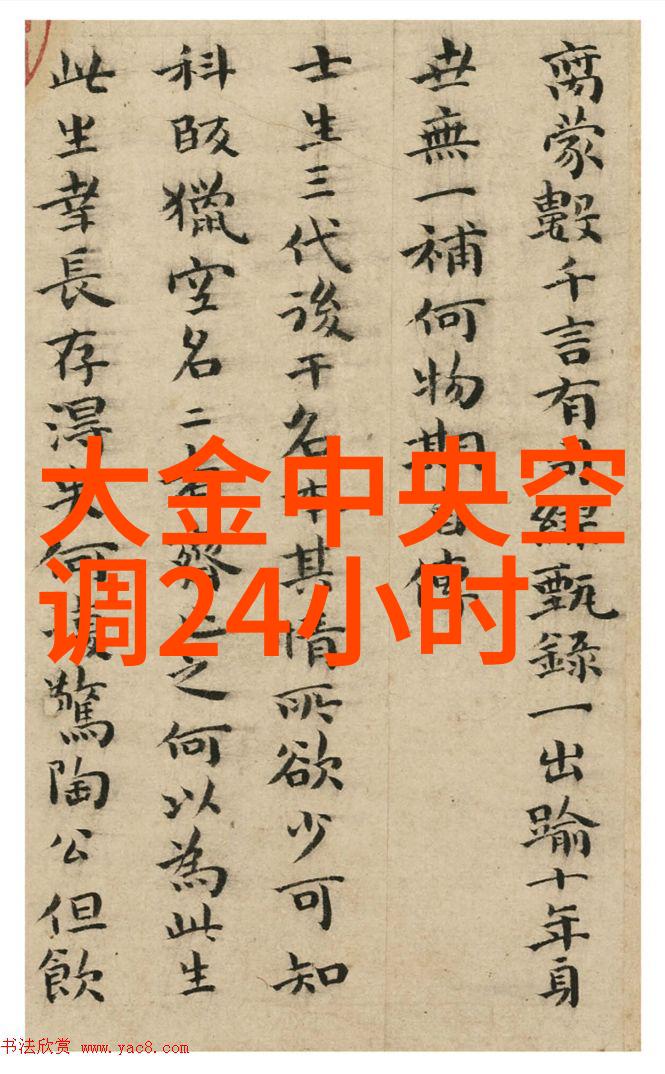 離蒙數千言有別緣甄錄一出踰十年身
世無一補何物期自傳
士生三代後干名本其情所欲少可知
科段獵空名二者齊亡之何以為此生
此生幸長存得失何 驚陶公但飲
大金中央空
调24小时
书法欣赏 www.yac8.com